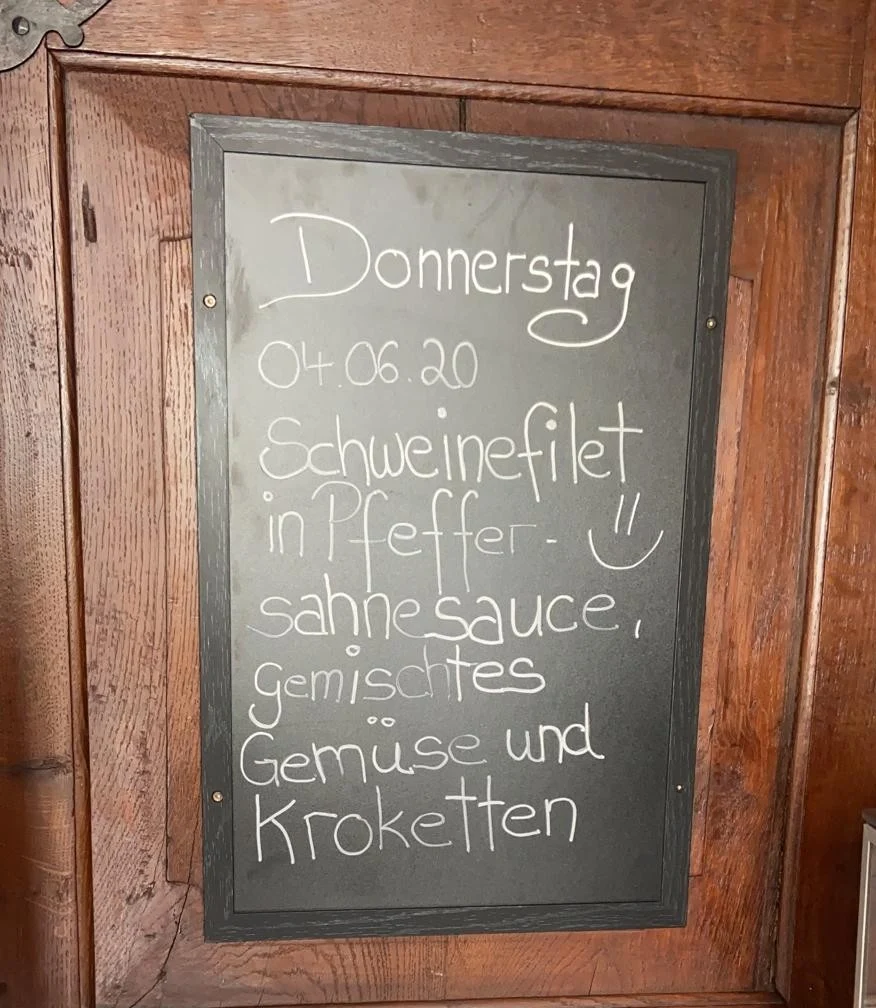 Donnerstag
04.06.20
Schweinefilet
in Pfeffer-
sahnesauce,
gemischtes
Gemüse und
Kroketten